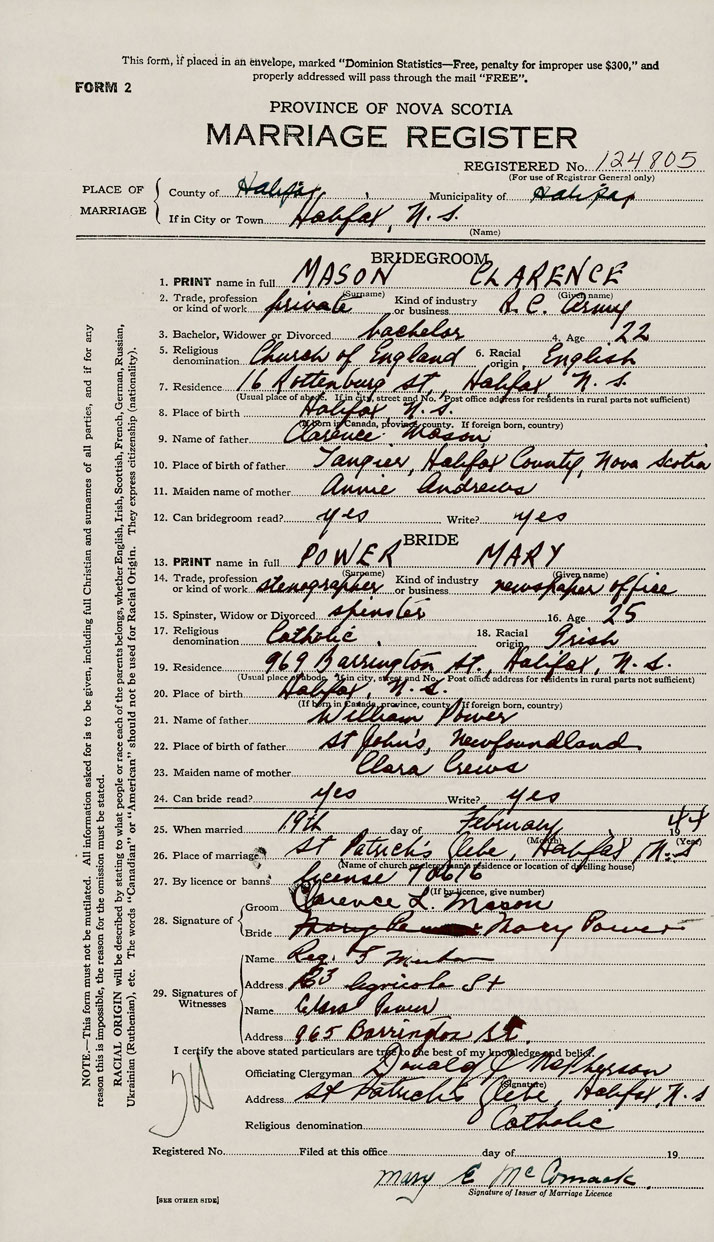 This form, if placed in an envelope, marked "Dominion Statistics—Free, penalty for improper use $300," and
properly addressed will pass through the mail "FREE".
FORM 2
PROVINCE OF NOVA SCOTIA
MARRIAGE REGISTER
REGISTERED No. 124805
(For use of Registrar General only)
PLACE OF MARRIAGE
County of Halifax Municipality of Halifax
If in City or Town Halifax, N. S.
(Name)
BRIDEGROOM
1. PRINT name in full MASON CLARENCE
(Surname) (Given name)
2. Trade, profession or kind of work private Kind of industry or business A.C. Army
3. Bachelor, Widower or Divorced bachelor 4. Age 22
5. Religious denomination Church of England 6. Racial origin English
7. Residence 16 Rottenburg St, Halifax, N. S.
(Usual place of abode. If in city, street and No. Post office address for residents in rural parts not sufficient)
8. Place of birth Halifax, N. S.
(If born in Canada, province, county. If foreign born, country)
9. Name of father Clarence Mason
10. Place of birth of father Tangier, Halifax County, Nova Scotia
11. Maiden name of mother Annie Andrews
12. Can bridegroom read? yes Write? yes
BRIDE
13. PRINT name in full POWER MARY
(Surname) (Given name)
14. Trade, profession or kind of work stenographer Kind of industry or business newspaper office
15. Spinster, Widow or Divorced spinster 16. Age 25
17. Religious denomination Catholic 18. Racial origin Irish
19. Residence 969 Barrington St., Halifax, N. S.
(Usual place of abode. If in city, street and No. Post office address for residents in rural parts not sufficient)
20. Place of birth Halifax, N. S.
(If born in Canada, province, county. If foreign born, country)
21. Name of father William Power
22. Place of birth of father St John's, Newfoundland
23. Maiden name of mother Clara Crews
24. Can bride read? yes Write? yes
25. When married 19th day of February 1944
(Month) (Year)
26. Place of marriage St Patrick's Glebe, Halifax, N. S
(Name of church or clergyman's residence or location of dwelling house)
27. By licence or banns License 70616
(If by licence, give number)
28. Signature of
Groom Clarence L. Mason
Bride Mary Power
29. Signatures of Witnesses
Name Reg. F
Address Agricola St
Name Clara Power
Address 965 Barrington St.
I certify the above stated particulars are true to the best of my knowledge and belief.
Officiating Clergyman Donald J McPherson
(Signature)
Address St Patrick's Glebe, Halifax, N. S
Religious denomination Catholic
Registered No. Filed at this office day of 19
Mary E McComack
Signature of Issuer of Marriage Licence
[SEE OTHER SIDE]
NOTE.—This form must not be mutilated. All information asked for is to be given, including full Christian and surnames of all parties, and if for any
reason this is impossible, the reason for the omission must be stated.
RACIAL ORIGIN will be described by stating to what people or race each of the parents belongs, whether English, Irish, Scottish, French, German, Russian,
Ukrainian (Ruthenian), etc. The words "Canadian" or "American" should not be used for Racial Origin. They express citizenship (nationality).